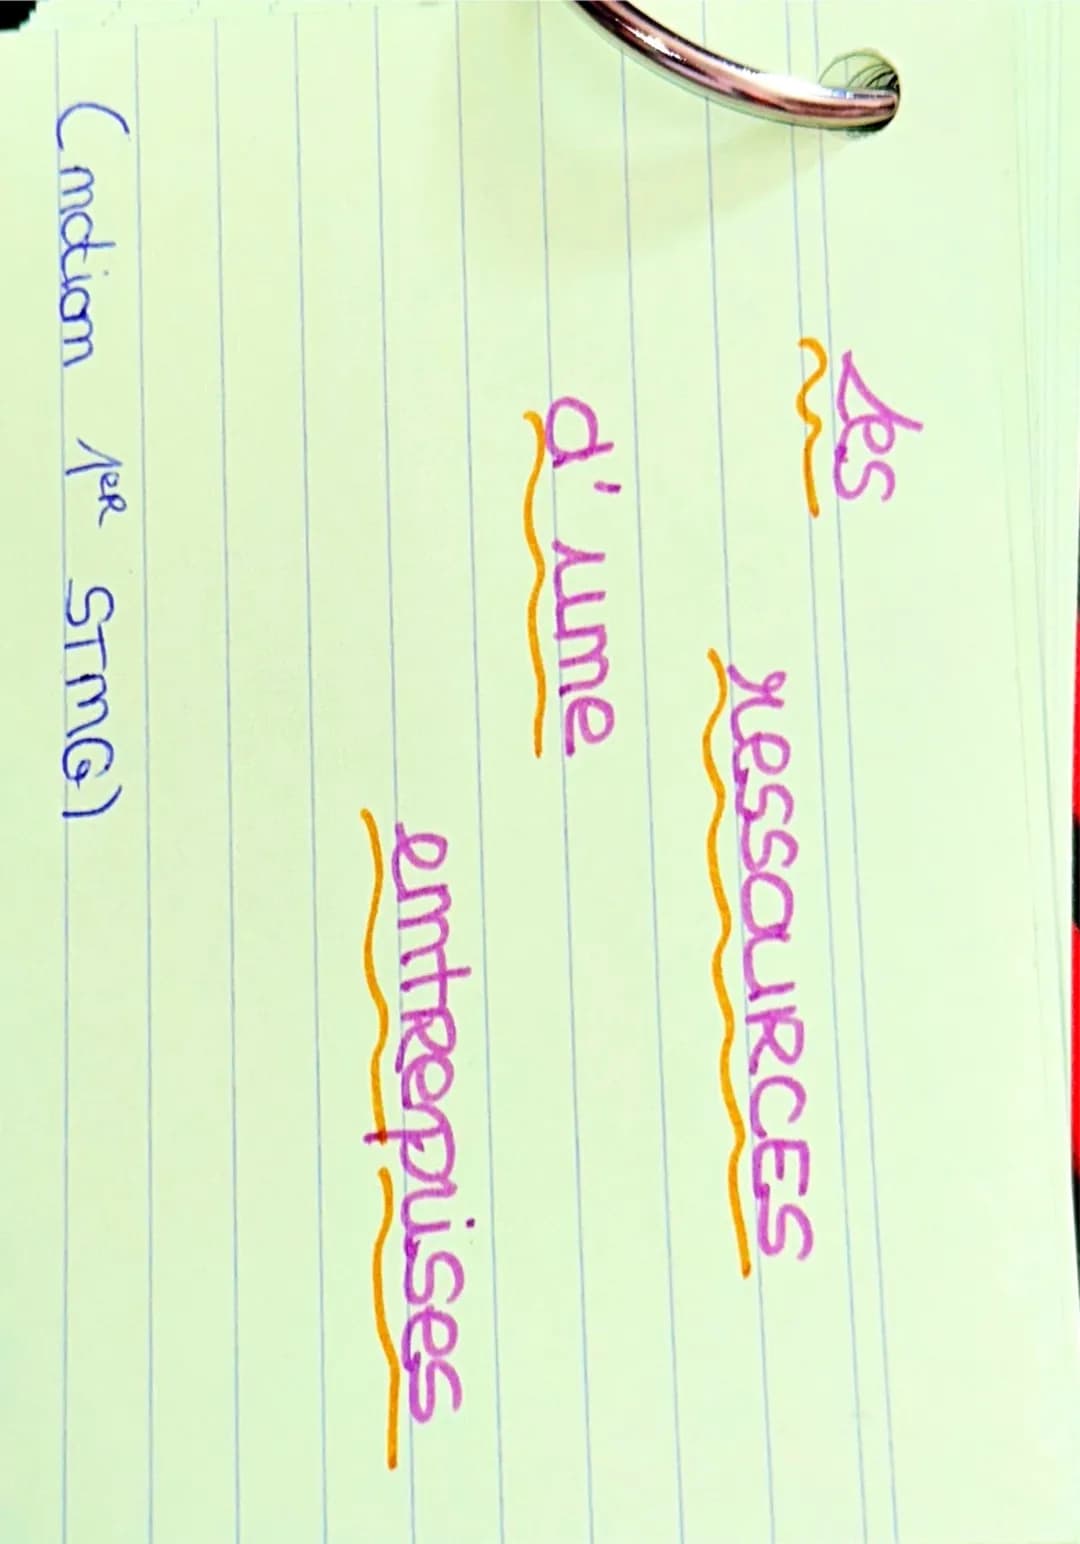 Les
ressources
d'une
entreprises
(notion 1er STMG)